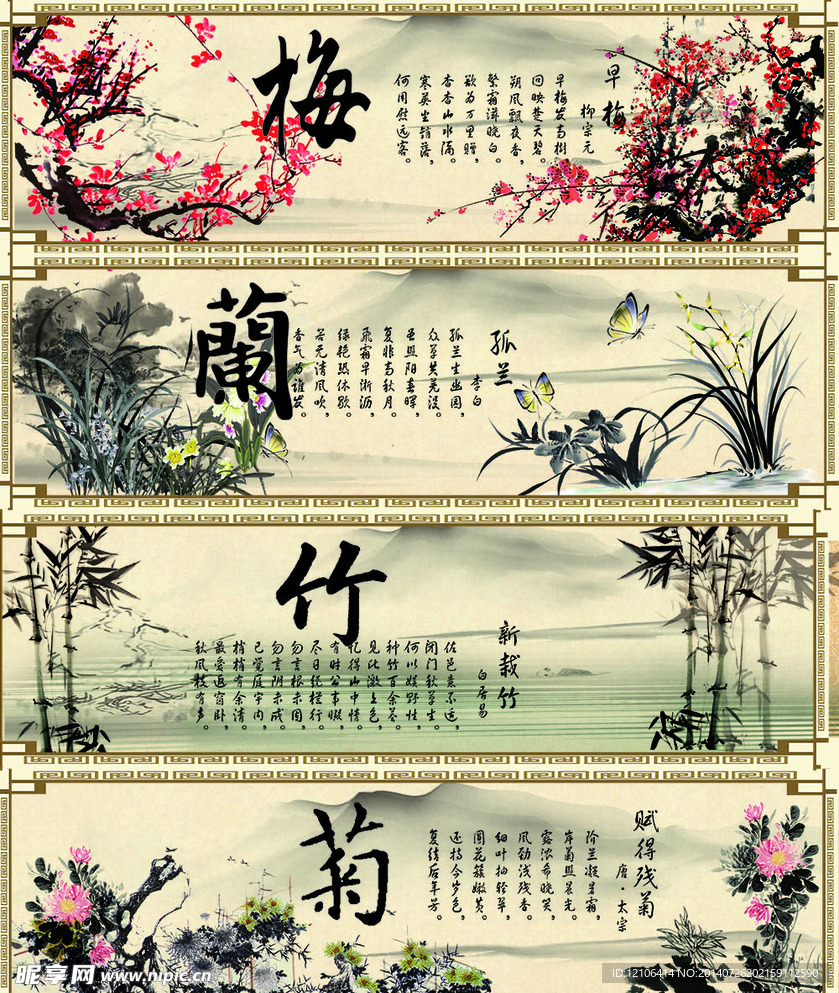 梅
早梅
柳宗元
早梅发高树，
回映楚天碧。
朔风飘夜香，
繁霜滋晓白。
欲为万里赠，
杳杳山水隔。
寒英坐销落，
何用慰远客。
蘭
孤兰
李白
孤兰生幽园，
众草共芜没。
虽照阳春晖，
复非高秋月。
飞霜早淅沥，
绿艳恐休歇。
若无清风吹，
香气为谁发。
竹
新栽竹
白居易
佐邑意不适，
闭门秋草生。
何以娱野性，
种竹百余茎。
见此溪上色，
忆得山中情。
有时公事暇，
尽日绕栏行。
勿言根未固，
勿言阴未成。
已觉庭宇内，
稍稍有余清。
最爱近窗卧，
秋风枝有声。
菊
赋得残菊
唐·太宗
阶兰凝曙霜，
岸菊照晨光。
露浓希晓笑，
风劲浅残香。
细叶抽轻翠，
圆花簇嫩黄。
还持今岁色，
复结后年芳。
昵享网 www.nipic.cn
ID:12106414 NO:20140726302159112590